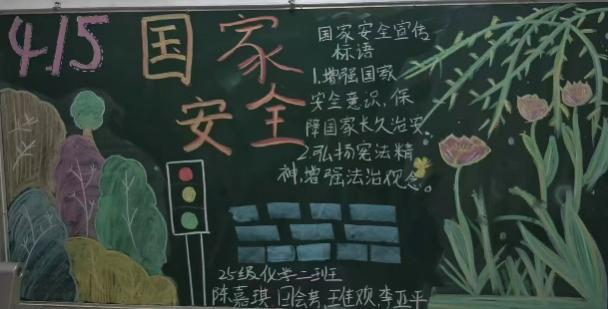 415
国家
安全
国家安全宣传
标语
1.增强国家
安全意识,保
障国家长久治安。
2.弘扬宪法精
神,增强法治观念。
25级化学二班
陈嘉琪 王佳欢 李亚平